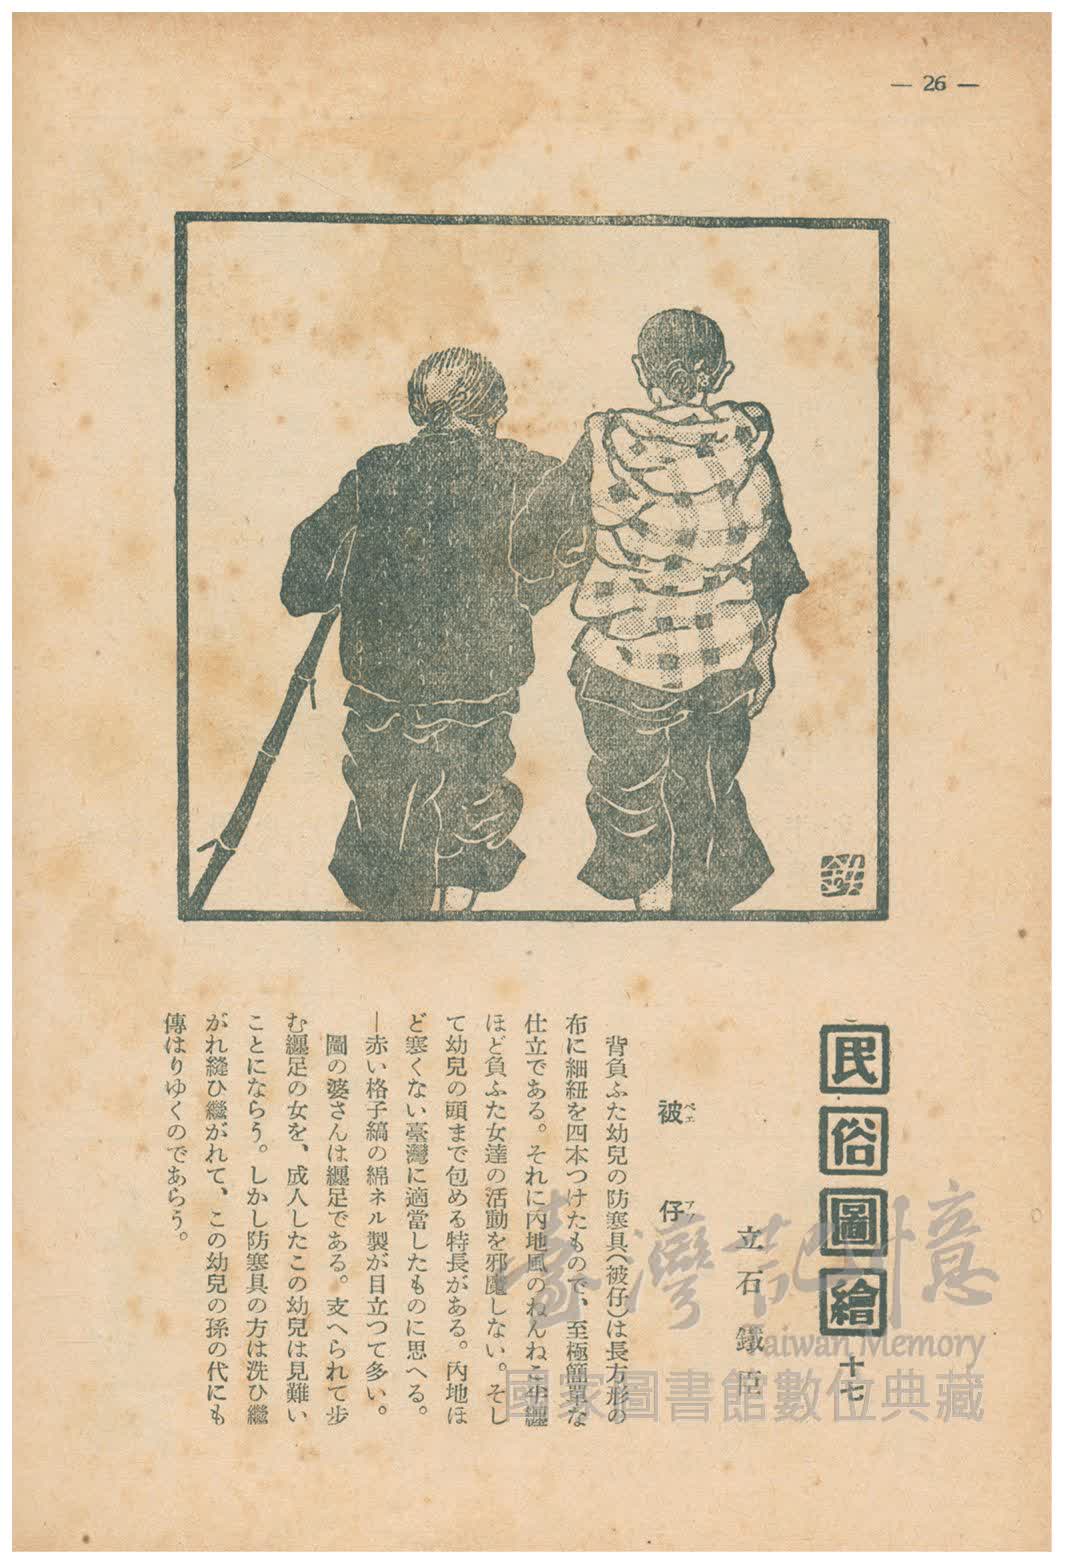 — 26 —
鉄
民俗圖繪 十七
立石鐵臣
被仔
ペエ ア
背負ふた幼兒の防寒具(被仔)は長方形の
布に細紐を四本つけたもので、至極簡單な
仕立である。それに内地風のねんねこ半纏
ほど負ふた女達の活動を邪魔しない。そし
て幼兒の頭まで包める特長がある。内地ほ
ど寒くない臺灣に適當したものに思へる。
―赤い格子縞の綿ネル製が目立つて多い。
圖の婆さんは纒足である。支へられて步
む纒足の女を、成人したこの幼兒は見難い
ことにならう。しかし防寒具の方は洗ひ繼
がれ縫ひ繼がれて、この幼兒の孫の代にも
傳はりゆくのであらう。
臺灣記憶
Taiwan Memory
國家圖書館數位典藏